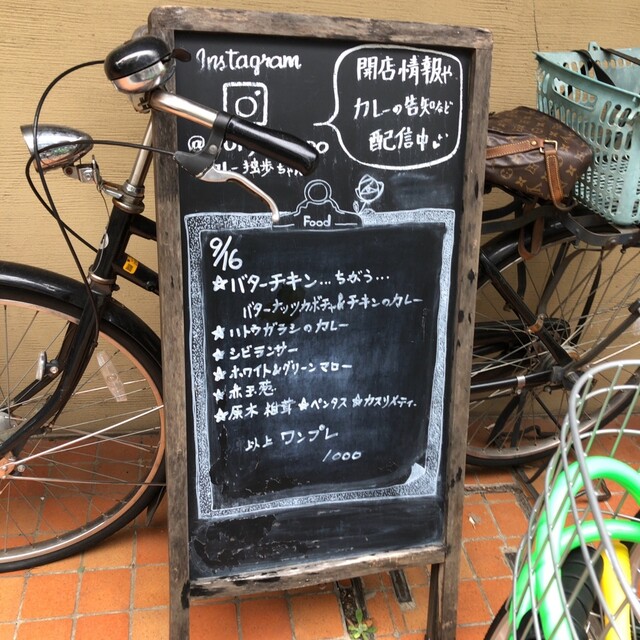 Instagram
開店情報や
カレーの告知など
配信中
Food
9/16
★バターチキン…ちがう…
バターナッツカボチャ&チキンのカレー
★ハトウガラシのカレー
★シビランサー
★ホワイト&グリーンマロー
★赤玉葱
★原木 椎茸 ★ペンタス ★カスリメティ.
以上 ワンプレ
1000